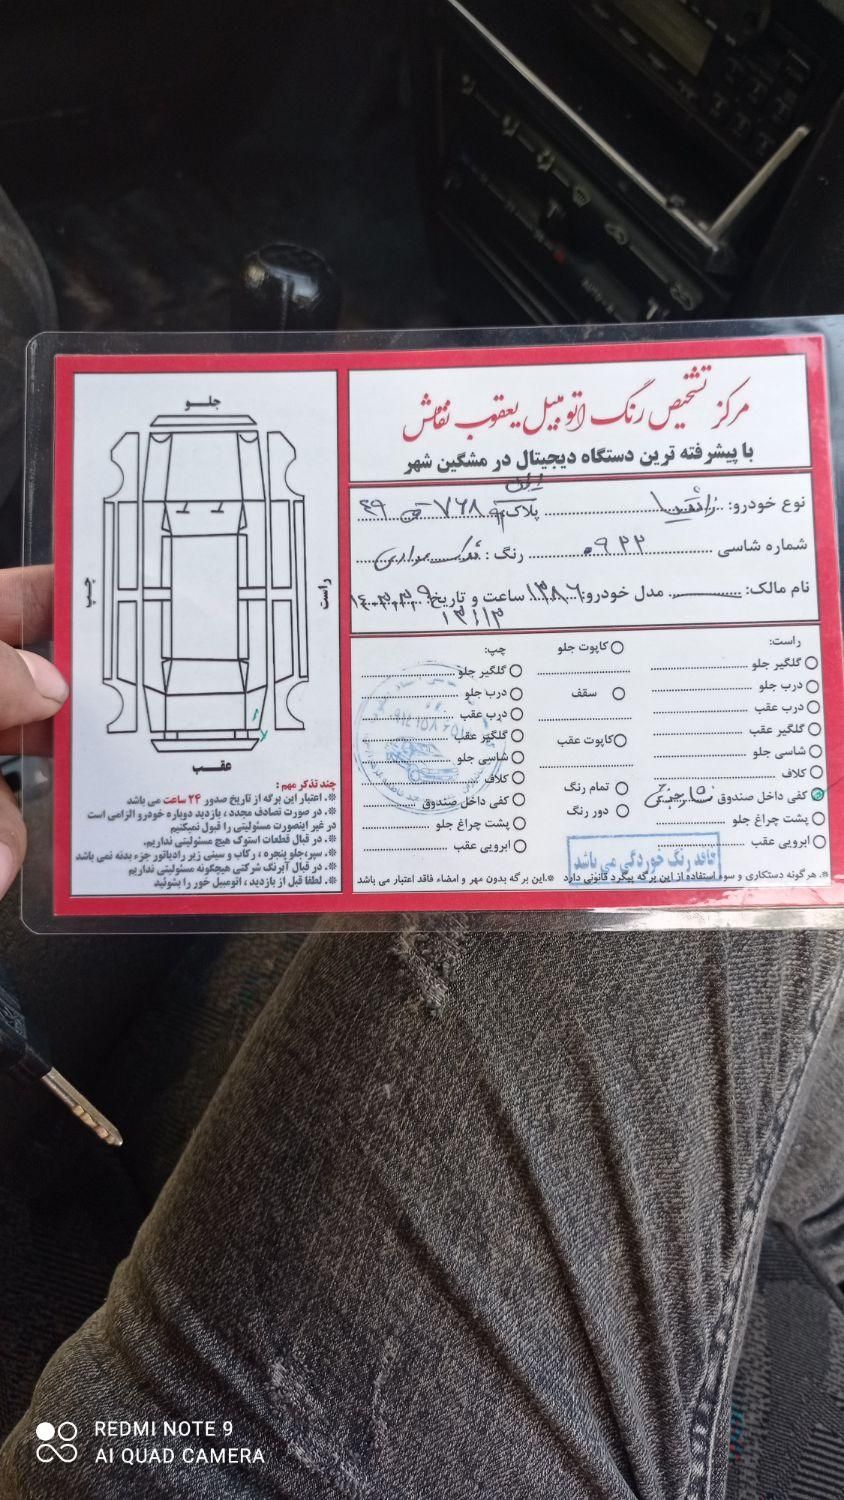 مرکز تشخیص رنگ اتومبیل یعقوب نقاش
با پیشرفته ترین دستگاه دیجیتال در مشگین شهر
نوع خودرو: زانتیا پلاک ایران ۷۶۸ ق ۴۹
شماره شاسی ۰۹۲۲ رنگ:
نام مالک: مدل خودرو: ۱۳۸۶ ساعت و تاریخ ۱۴۰۰,۳,۲۹
۱۳:۱۳
راست:
گلگیر جلو
درب جلو
درب عقب
گلگیر عقب
شاسی جلو
کلاف
کفی داخل صندوق
پشت چراغ جلو
ابرویی عقب
کاپوت جلو
سقف
کاپوت عقب
تمام رنگ
دور رنگ
چپ:
گلگیر جلو
درب جلو
درب عقب
گلگیر عقب
شاسی جلو
کلاف
کفی داخل صندوق
پشت چراغ جلو
ابرویی عقب
فاقد رنگ خوردگی می باشد
*. هرگونه دستکاری و سوء استفاده از این برگه پیگرد قانونی دارد *.این برگه بدون مهر و امضاء فاقد اعتبار می باشد
جلـو
چپ
راست
عقـب
چند تذکر مهم :
*. اعتبار این برگه از تاریخ صدور ۲۴ ساعت می باشد
*. در صورت تصادف مجدد، بازدید دوباره خودرو الزامی است
در غیر اینصورت مسئولیتی را قبول نمیکنیم
*. در قبال قطعات استوک هیچ مسئولیتی نداریم.
*. سپر،جلو پنجره ، رکاب و سینی زیر رادیاتور جزء بدنه نمی باشد
*. در قبال آبرنگ شرکتی هیچگونه مسئولیتی نداریم
*. لطفا قبل از بازدید ، اتومبیل خور را بشوئید
REDMI NOTE 9
AI QUAD CAMERA